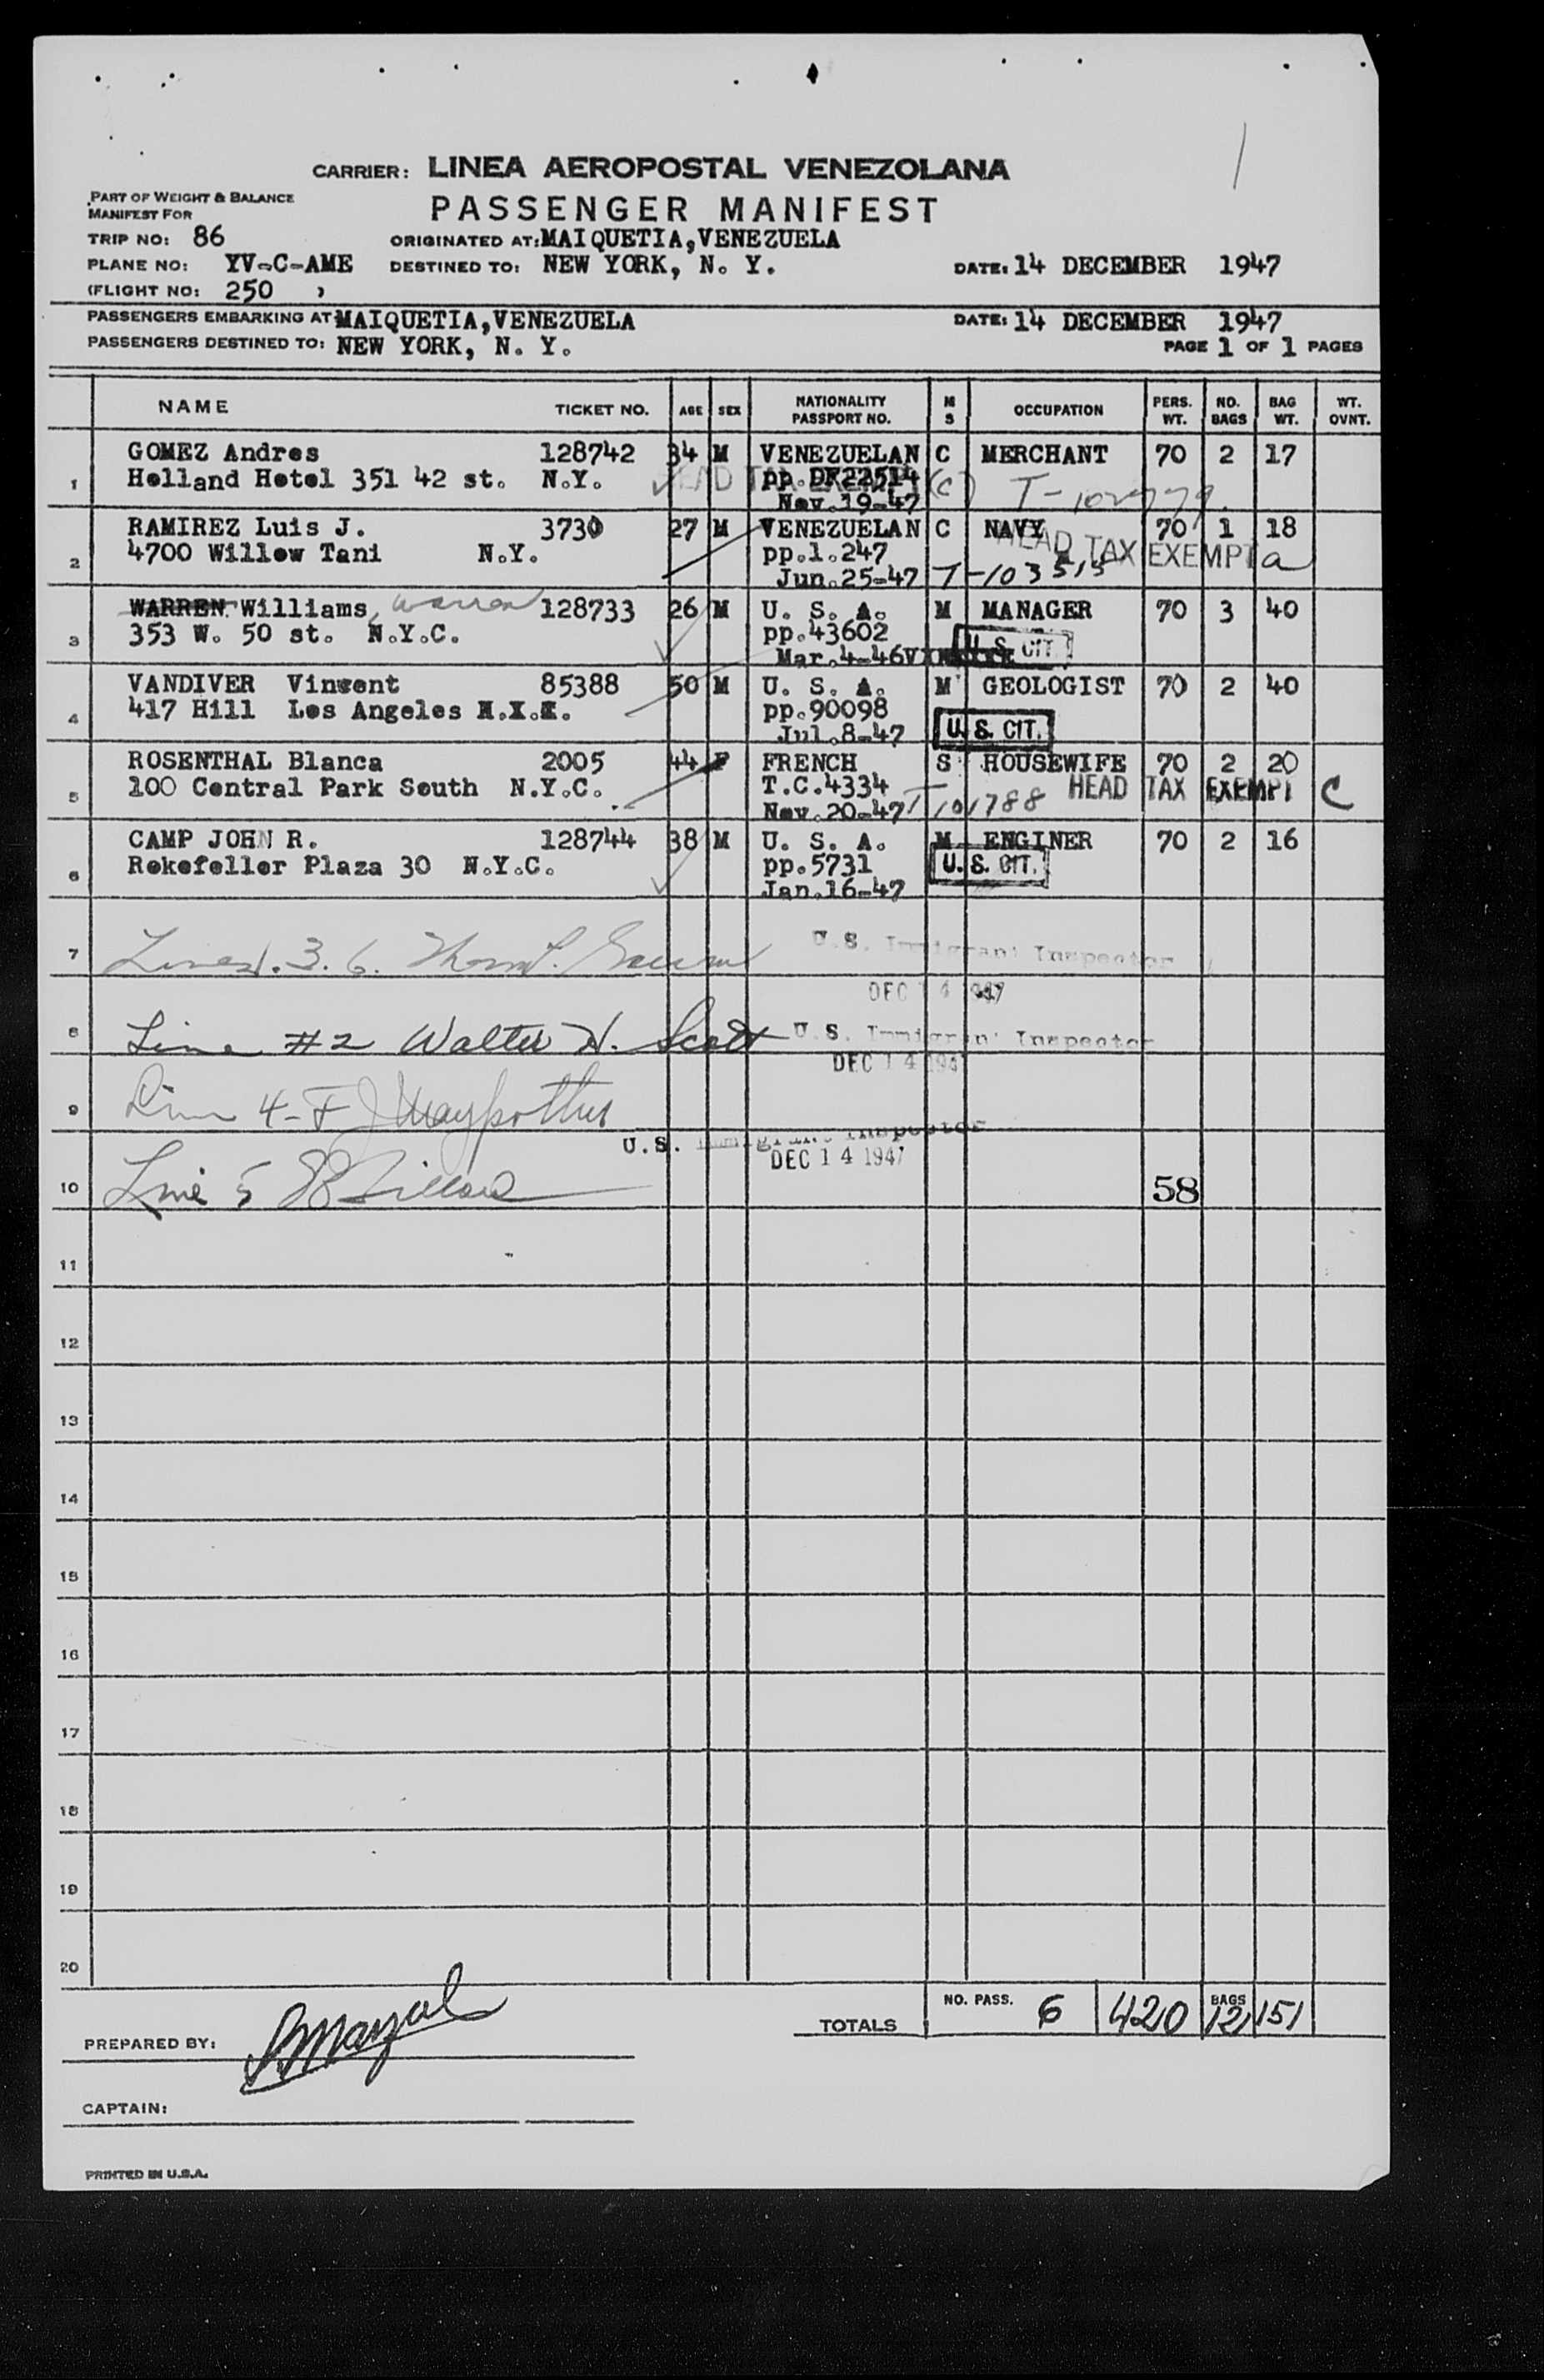 CARRIER: LINEA AEROPOSTAL VENEZOLANA
PART OF WEIGHT & BALANCE
MANIFEST FOR
PASSENGER MANIFEST
TRIP NO: 86 ORIGINATED AT: MAIQUETIA, VENEZUELA
PLANE NO: YV-C-AME DESTINED TO: NEW YORK, N. Y. DATE: 14 DECEMBER 1947
(FLIGHT NO: 250 )
PASSENGERS EMBARKING AT MAIQUETIA, VENEZUELA DATE: 14 DECEMBER 1947
PASSENGERS DESTINED TO: NEW YORK, N. Y. PAGE 1 OF 1 PAGES
NAME TICKET NO. AGE SEX NATIONALITY PASSPORT NO. M S OCCUPATION PERS. WT. NO. BAGS BAG WT. WT. OVNT.
GOMEZ Andres 128742 34 M VENEZUELAN C MERCHANT 70 2 17
1 Holland Hotel 351 42 st. N.Y. pp. DF22514 (C)
Nov. 19-47
RAMIREZ Luis J. 3730 27 M VENEZUELAN C NAVY 70 1 18
2 4700 Willow Tani N.Y. pp.1.247 HEAD TAX EXEMPT a
Jun. 25-47 T-103515
WARREN Williams, Warren 128733 26 M U. S. A. M MANAGER 70 3 40
3 353 W. 50 st. N.Y.C. pp.43602 U. S. CIT.
Mar. 4-46
VANDIVER Vincent 85388 50 M U. S. A. M GEOLOGIST 70 2 40
4 417 Hill Los Angeles pp.90098 U. S. CIT.
Jul. 8-47
ROSENTHAL Blanca 2005 44 F FRENCH S HOUSEWIFE 70 2 20
5 100 Central Park South N.Y.C. T.C.4334 HEAD TAX EXEMPT C
Nov. 20-47 T 101788
CAMP JOHN R. 128744 38 M U. S. A. M ENGINER 70 2 16
6 Rekefeller Plaza 30 N.Y.C. pp.5731 U. S. CIT.
Jan. 16-47
7 Lines 1. 3. 6. U.S. Immigrant Inspector
DEC 14 1947
8 Line #2 Walter H. Scott U. S. Immigrant Inspector
DEC 14 1947
9 Line 4-
U.S. Immigrant Inspector
DEC 14 1947
10 Line 5 58
11
12
13
14
15
16
17
18
19
20
TOTALS NO. PASS. 6 420 BAGS 12 151
PREPARED BY:
CAPTAIN:
PRINTED IN U.S.A.